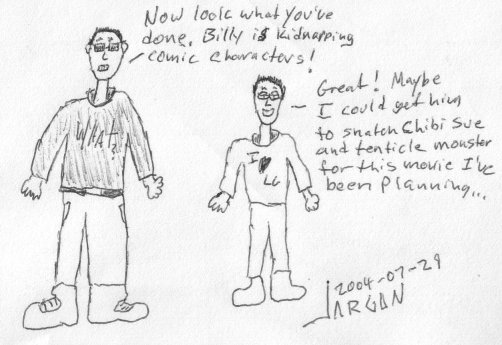 Now look what you've
done. Billy is kidnapping
comic characters!
Great! Maybe
I could get him
to snatch Chibi Sue
and tenticle monster
for this movie I've
been planning...
WHAT?
I ♥
LG
2004-07-29
JARGON